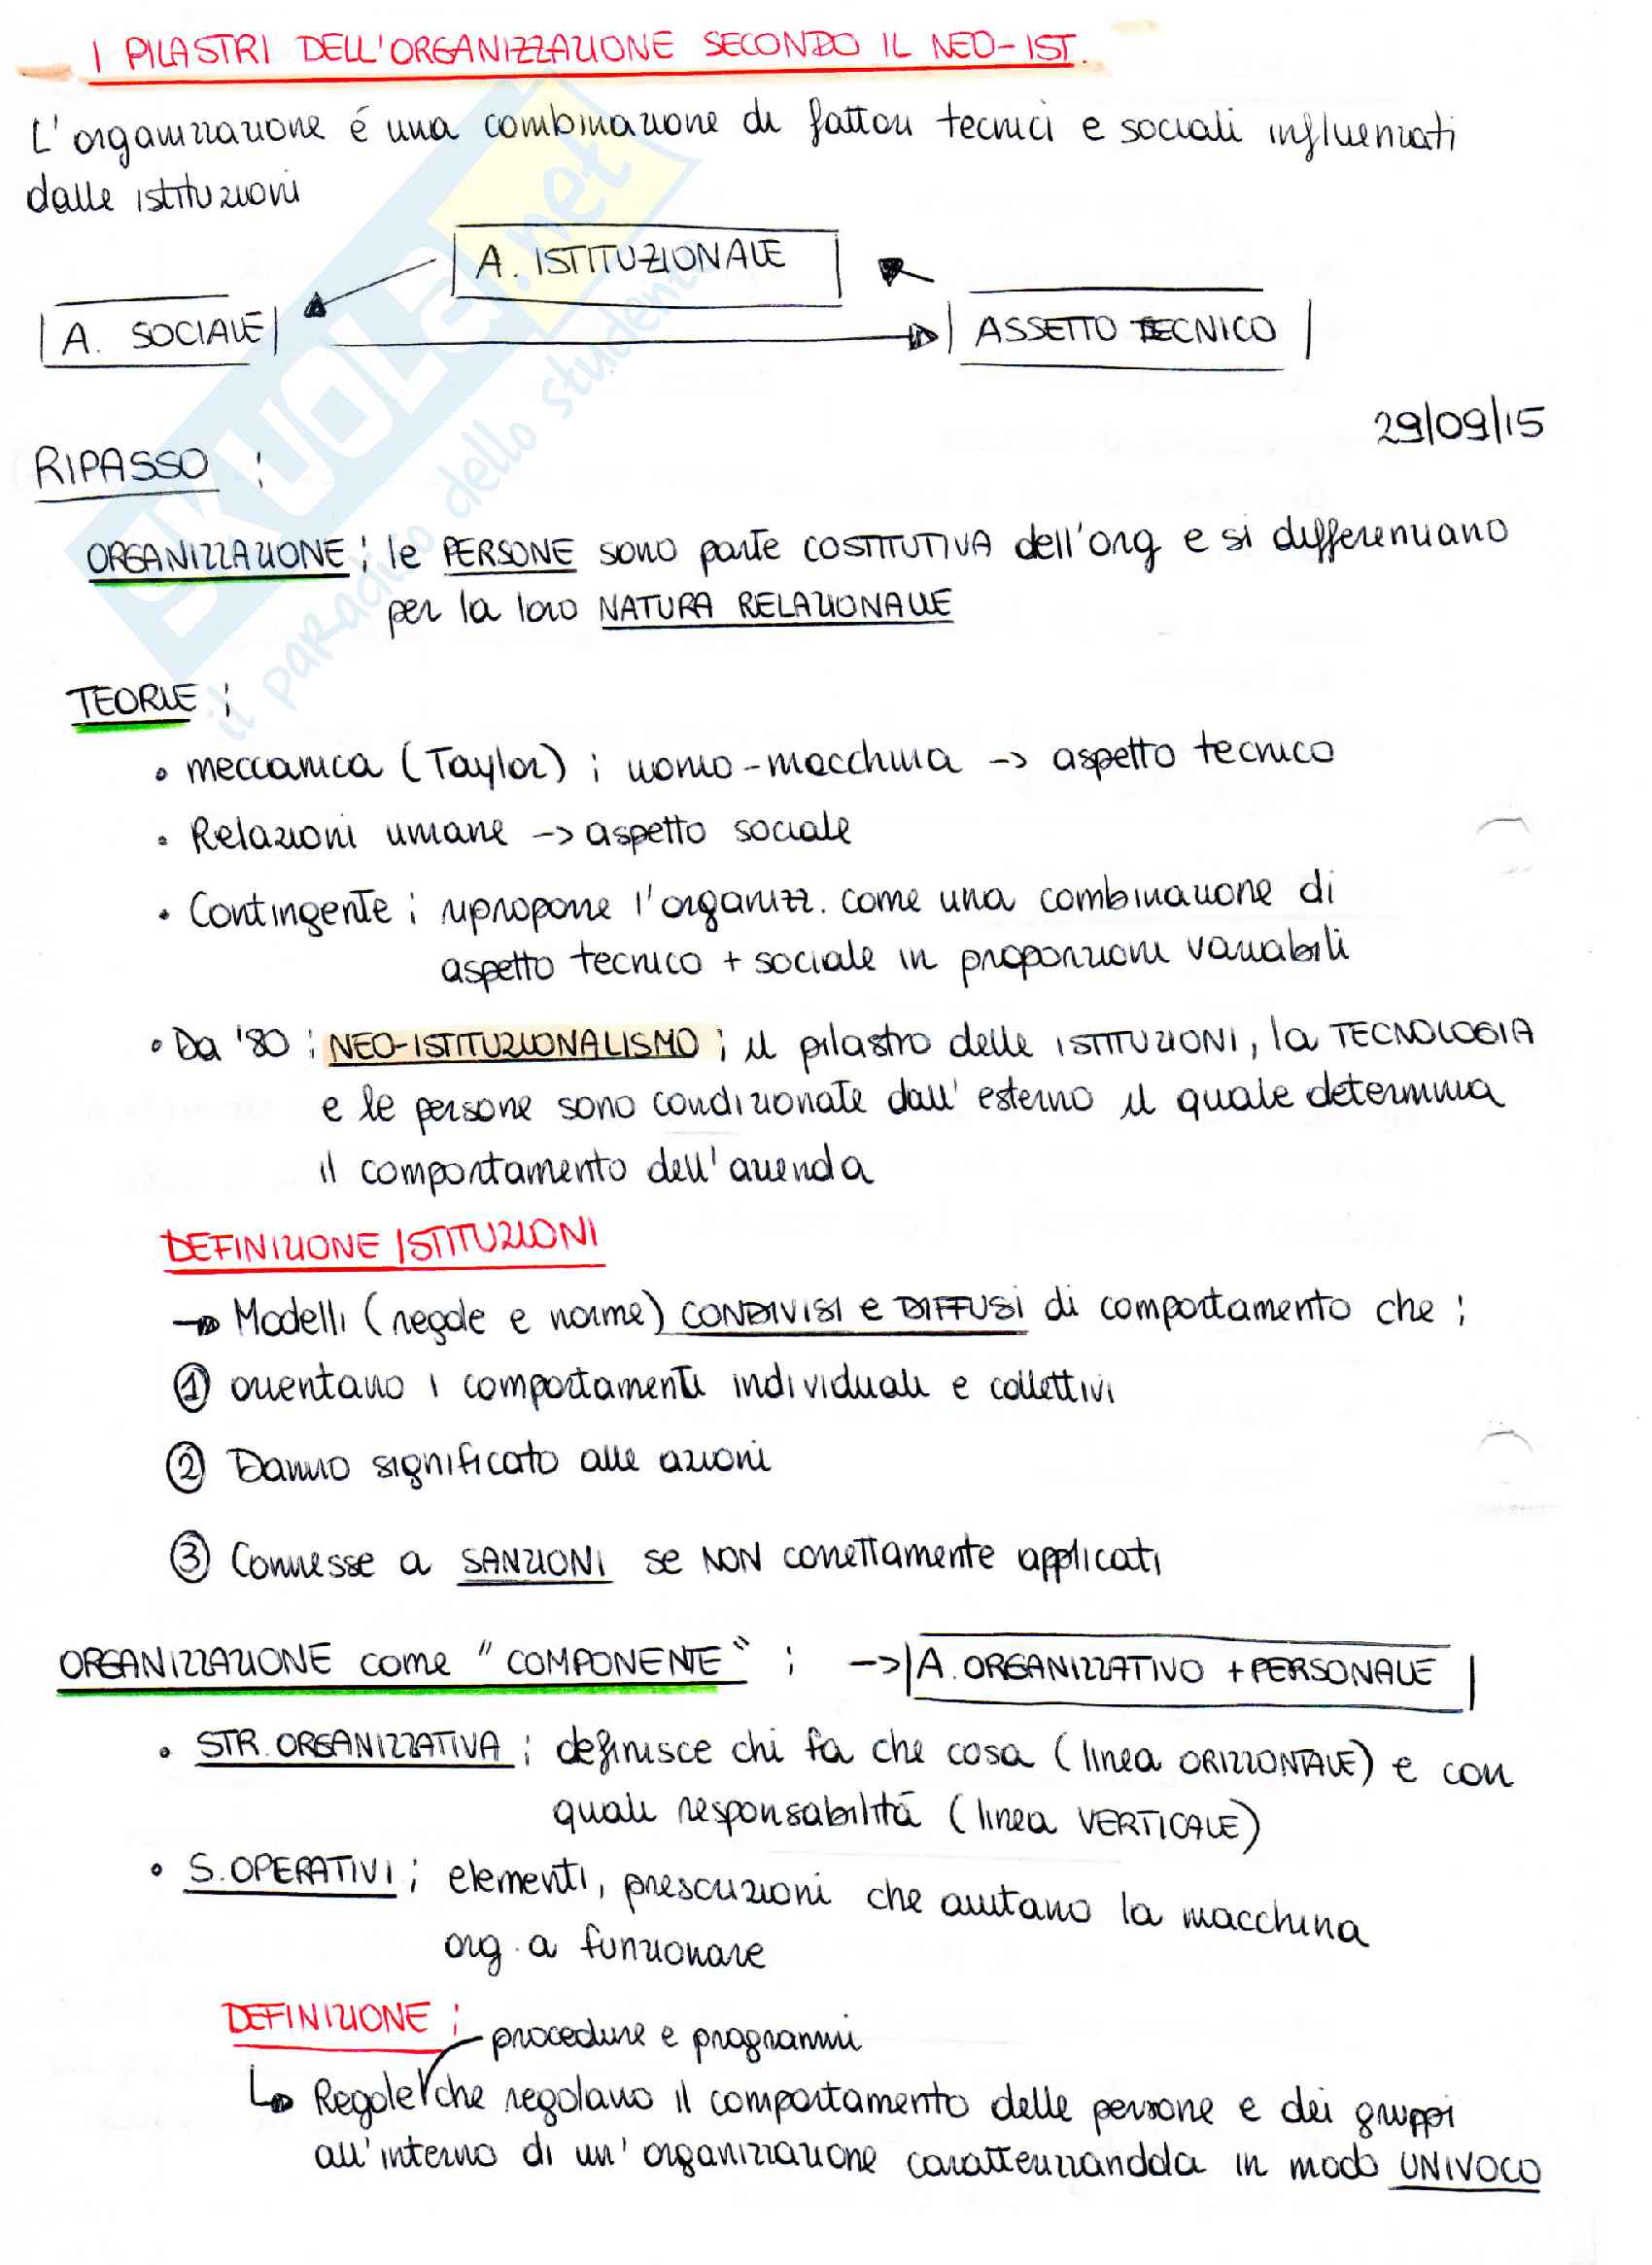 I PILASTRI DELL'ORGANIZZAZIONE SECONDO IL NEO-IST.
L'organizzazione é una combinazione di fattori tecnici e sociali influenzati
dalle istituzioni
A. ISTITUZIONALE
A. SOCIALE
ASSETTO TECNICO
29/09/15
RIPASSO :
ORGANIZZAZIONE : le PERSONE sono parte COSTITUTIVA dell'org e si differenziano
per la loro NATURA RELAZIONALE
TEORIE :
• meccanica (Taylor) : uomo-macchina -> aspetto tecnico
• Relazioni umane -> aspetto sociale
• Contingente : ripropone l'organizz. come una combinazione di
aspetto tecnico + sociale in proporzioni variabili
• Da '80 : NEO-ISTITUZIONALISMO : il pilastro delle ISTITUZIONI, la TECNOLOGIA
e le persone sono condizionate dall'esterno il quale determina
il comportamento dell'azienda
DEFINIZIONE ISTITUZIONI
-> Modelli (regole e norme) CONDIVISI e DIFFUSI di comportamento che :
① orientano i comportamenti individuali e collettivi
② Danno significato alle azioni
③ Connesse a SANZIONI se NON correttamente applicati
ORGANIZZAZIONE come "COMPONENTE" : -> A. ORGANIZZATIVO + PERSONALE
• STR. ORGANIZZATIVA : definisce chi fa che cosa (linea ORIZZONTALE) e con
quali responsabilitá (linea VERTICALE)
• S. OPERATIVI : elementi, prescrizioni che aiutano la macchina
org. a funzionare
DEFINIZIONE :
procedure e programmi
-> Regole che regolano il comportamento delle persone e dei gruppi
all'interno di un'organizzazione caratterizzandola in modo UNIVOCO
SKUOLA.net
il paradiso dello studente